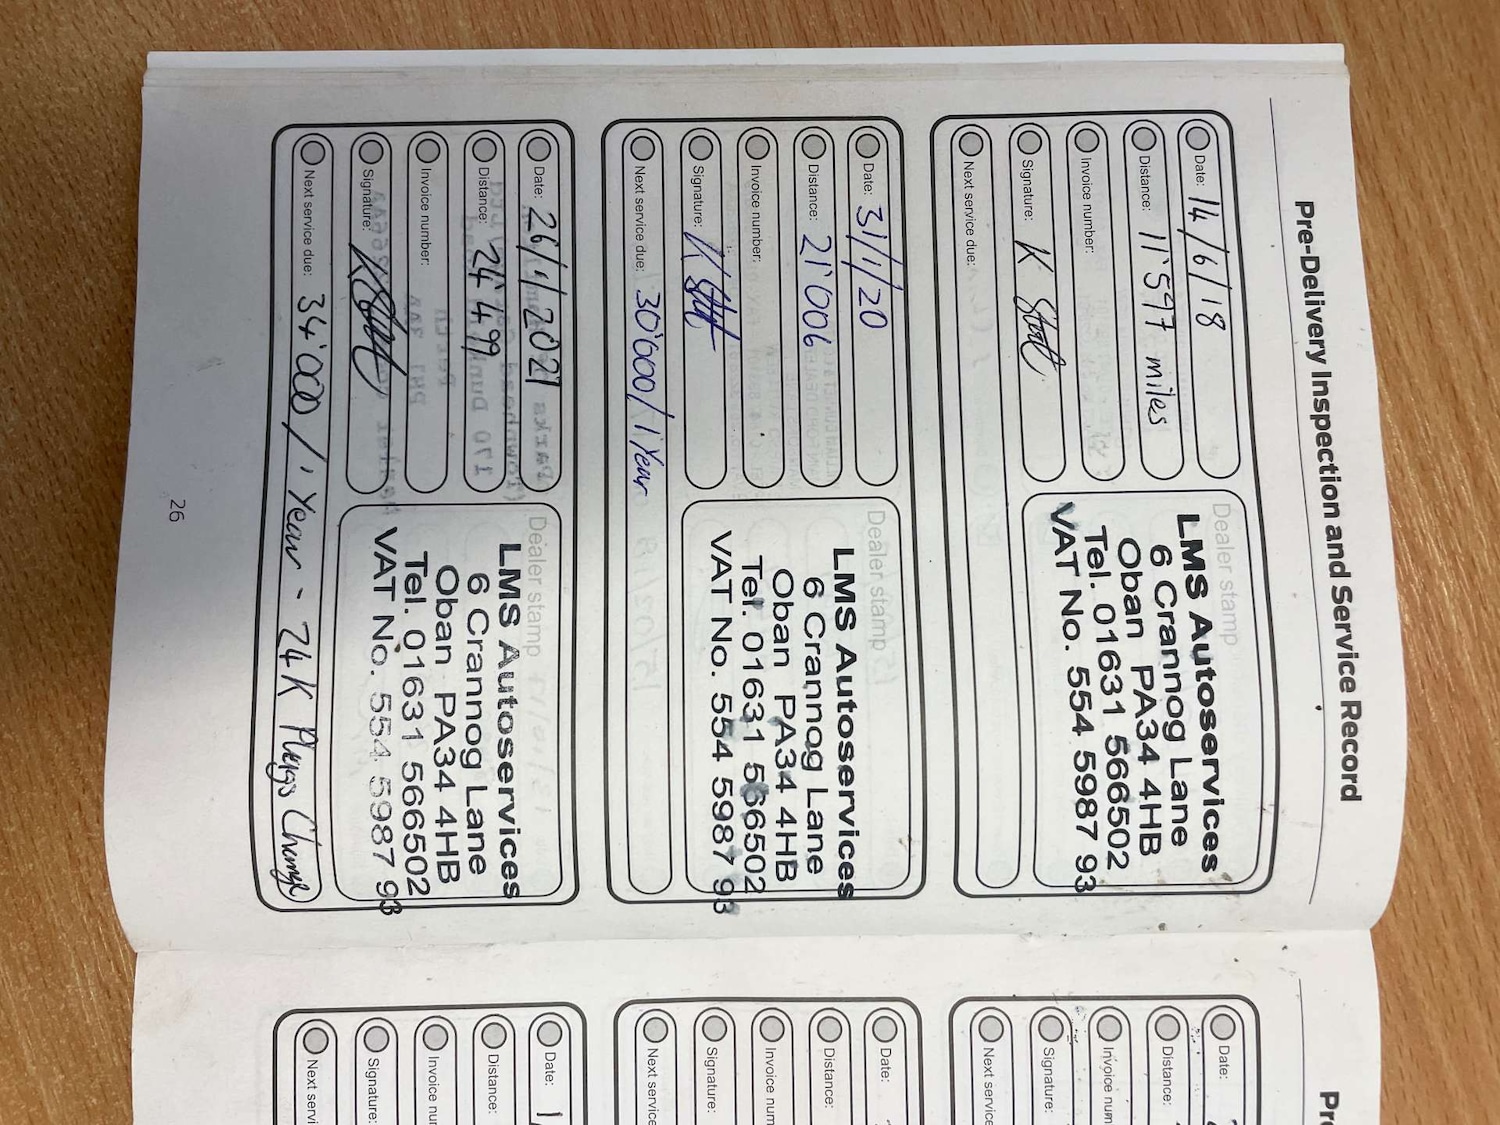 Pre-Delivery Inspection and Service Record
Date: 14/6/18
Distance: 11'597 miles
Invoice number:
Signature: K
Next service due:
Dealer stamp
LMS Autoservices
6 Crannog Lane
Oban PA34 4HB
Tel. 01631 566502
VAT No. 554 5987 93
Date: 31/1/20
Distance: 21'006
Invoice number:
Signature:
Next service due: 30'000/1 Year
Dealer stamp
LMS Autoservices
6 Crannog Lane
Oban PA34 4HB
Tel. 01631 566502
VAT No. 554 5987 93
Date: 26/1/2021
Distance: 24'499
Invoice number:
Signature:
Next service due: 34'000/1 Year - 24K Plugs Change
Dealer stamp
LMS Autoservices
6 Crannog Lane
Oban PA34 4HB
Tel. 01631 566502
VAT No. 554 5987 93
26
Pre
Date:
Distance:
Invoice num
Signature:
Next service
Date:
Distance:
Invoice num
Signature:
Next service
Date:
Distance:
Invoice nu
Signature:
Next servi